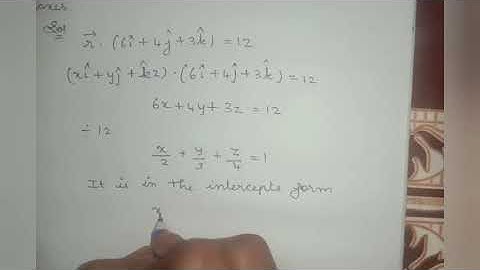 axes.
Sol
r⃗ · (6î + 4ĵ + 3k̂) = 12
(xî + yĵ + k̂z) · (6î + 4ĵ + 3k̂) = 12
6x + 4y + 3z = 12
÷ 12
x/2 + y/3 + z/4 = 1
It is in the intercepts form